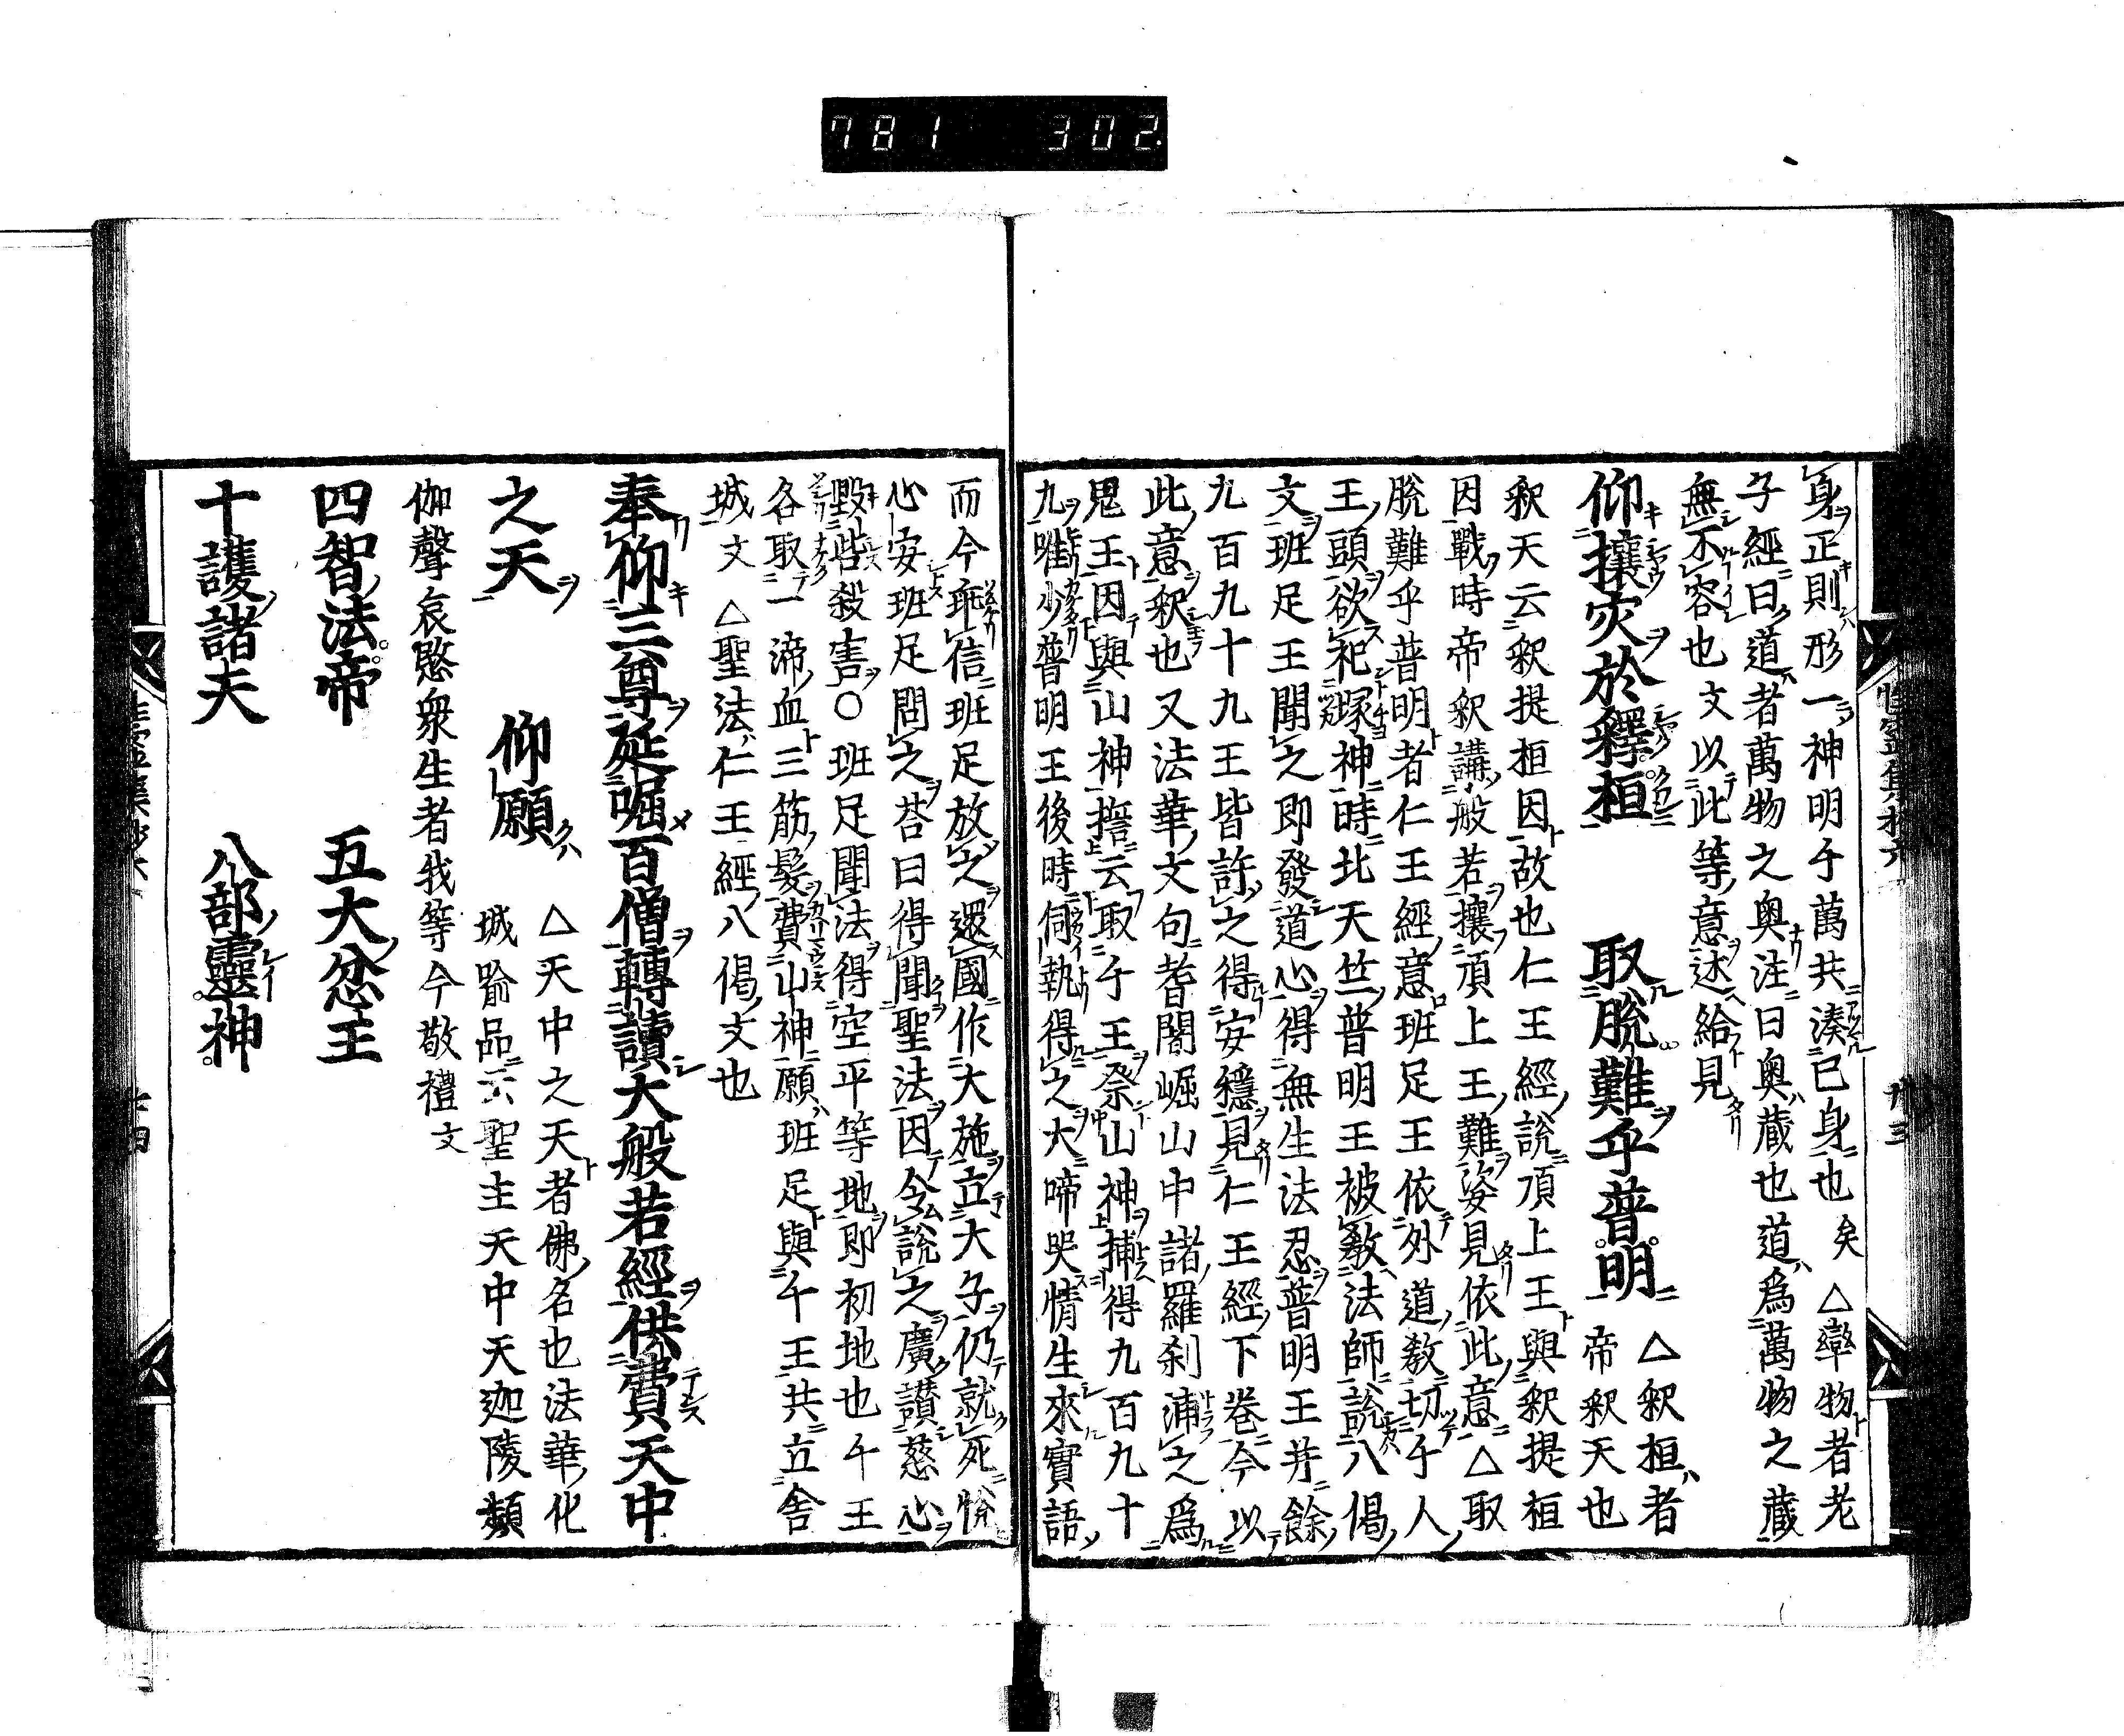 781 302
身正則形一神明于萬共湊已身也矣△犖物者老
子經曰道者萬物之奥注曰奥藏也道爲萬物之藏
無不容也文以此等意述給見
仰攘灾於釋桓 取脱難乎普明 △釈桓者
帝釈天也
釈天云釈提桓因故也仁王經說頂上王與釈提桓
因戰時帝釈講般若攘頂上王難姿見依此意△取
脱難乎普明者仁王經意班足王依外道教切千人
王頭欲祀塚神時北天竺普明王被教法師說八偈
文班足王聞之即發道心得無生法忍普明王并餘
九百九十九王皆許之得安穩見仁王經下巻今以
此意釈也又法華文句耆闍崛山中諸羅刹浦之爲
鬼王因與山神擔云取千王祭山神捕得九百九十
九唯少普明王後時伺執得之大啼哭情生來實語
而今乖信班足放之還國作大施立大子仍就死恰
心安班足問之荅曰得聞聖法因令說之廣讃慈心
毀呰殺害○班足聞法得空平等地即初地也千王
各取一渧血三筋髮賽山神願班足與千王共立舎
城文 △聖法仁王經八偈文也
奉仰三尊延崛百僧轉讀大般若經供賽天中
之天 仰願 △天中之天者佛名也法華化
城喻品云聖主天中天迦陵頻
伽聲哀愍衆生者我等今敬禮文
四智法帝 五大忿王
十護諸天 八部靈神